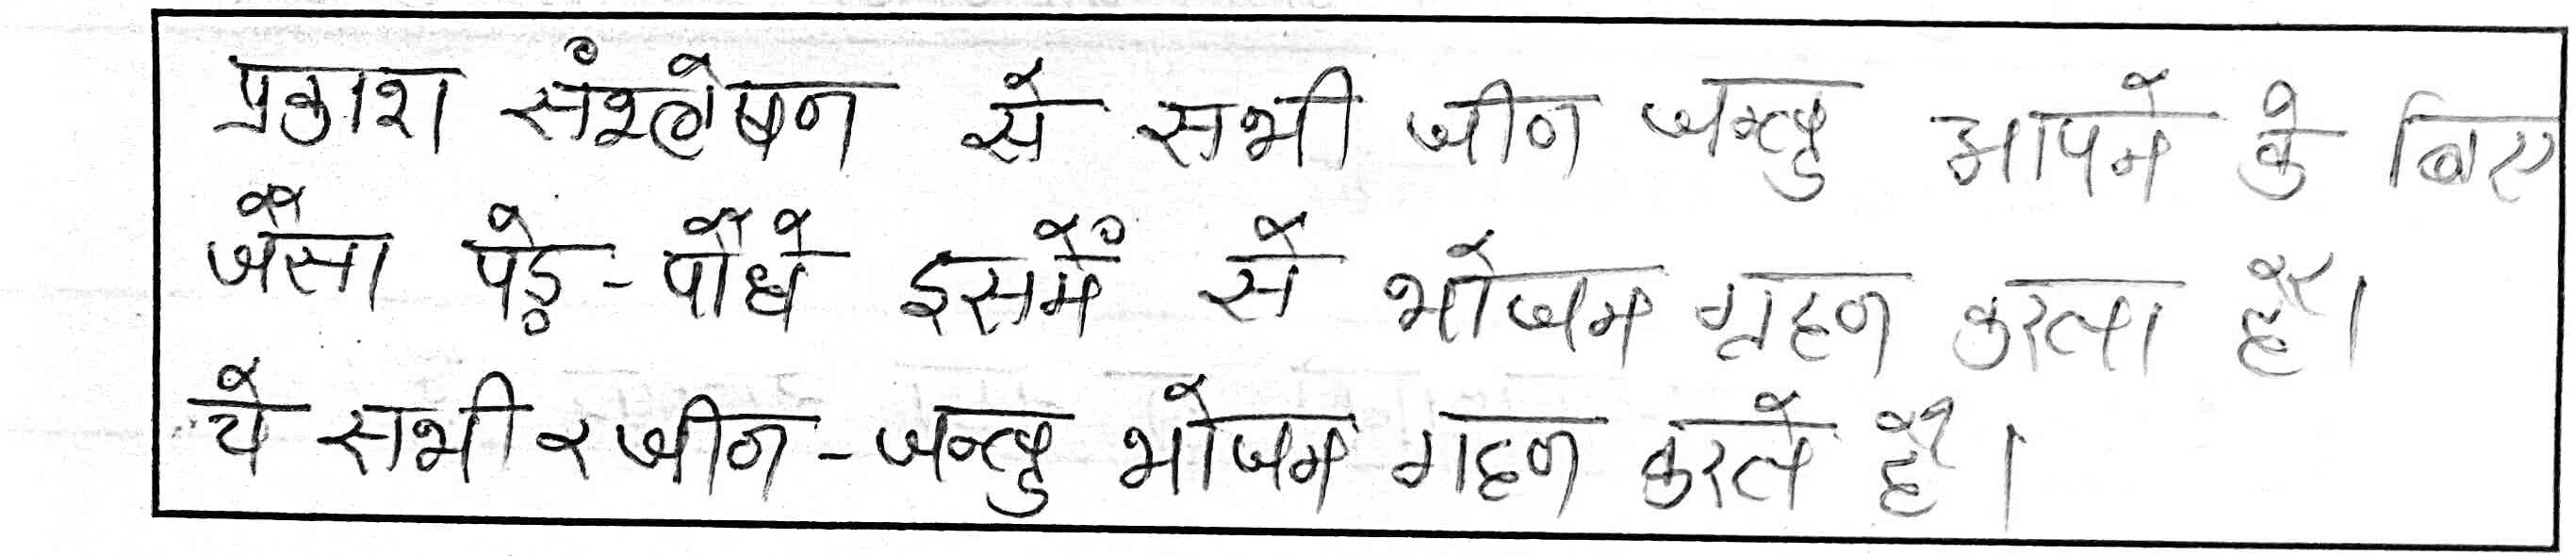 प्रकाश संश्लेषण से सभी जीव जन्तु आपने के लिए
जैसा पेड़-पौधे इसमें से भोजन गृहण करता है।
ये सभी र जीव-जन्तु भोजन गहण करते है।